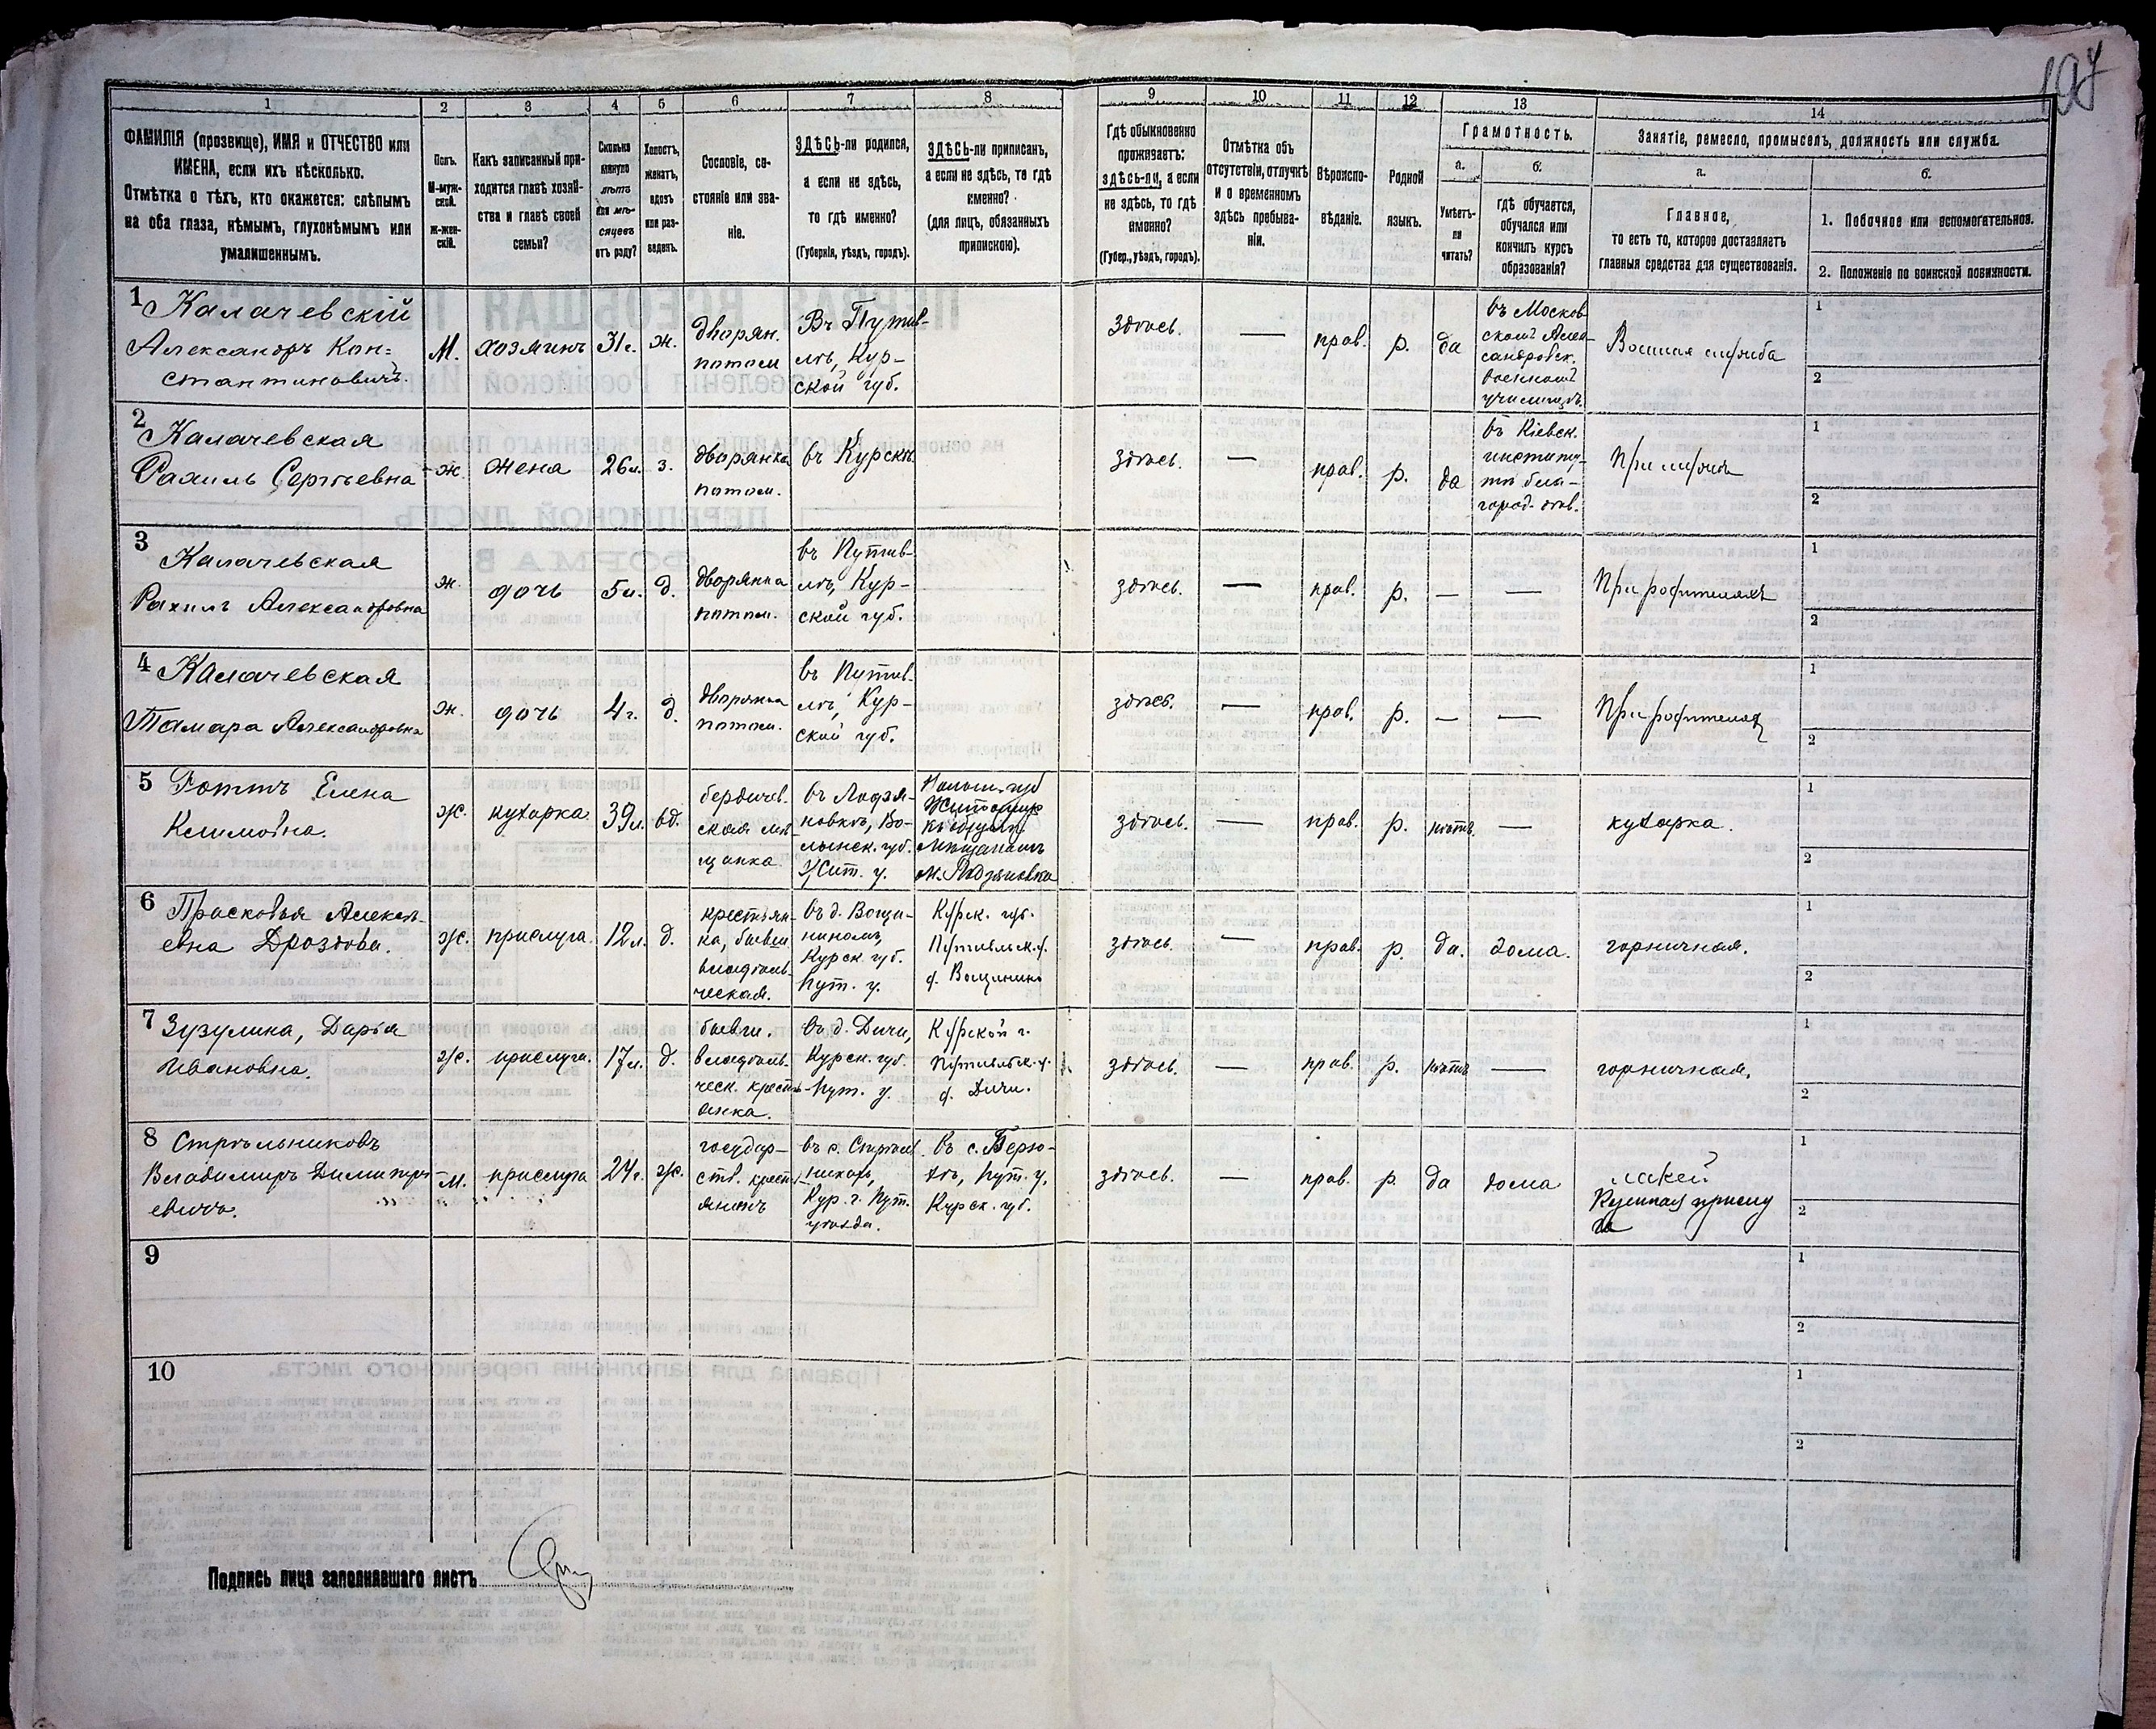 197
1 2 3 4 5 6 7 8 9 10 11 12 13 14
ФАМИЛІЯ (прозвище), ИМЯ и ОТЧЕСТВО или
ИМЕНА, если ихъ нѣсколько.
Отмѣтка о тѣхъ, кто окажется: слѣпымъ
на оба глаза, нѣмымъ, глухонѣмымъ или
умалишеннымъ.
Полъ.
М-муж-
ской.
Ж-жен-
скій.
Какъ записанный при-
ходится главѣ хозяй-
ства и главѣ своей
семьи?
Сколько
минуло
лѣтъ
или мѣ-
сяцевъ
отъ роду?
Холостъ,
женатъ,
вдовъ
или раз-
веденъ.
Сословіе, со-
стояніе или зва-
ніе.
ЗДѢСЬ-ли родился,
а если не здѣсь,
то гдѣ именно?
(Губернія, уѣздъ, городъ).
ЗДѢСЬ-ли приписанъ,
а если не здѣсь, то гдѣ
именно?
(для лицъ, обязанныхъ
припискою).
Гдѣ обыкновенно
проживаетъ:
здѣсь-ли, а если
не здѣсь, то гдѣ
именно?
(Губер., уѣздъ, городъ).
Отмѣтка объ
отсутствіи, отлучкѣ
и о временномъ
здѣсь пребыва-
ніи.
Вѣроиспо-
вѣданіе.
Родной
языкъ.
Грамотность.
а.
Умѣетъ-
ли
читать?
б.
гдѣ обучается,
обучался или
кончилъ курсъ
образованія?
Занятіе, ремесло, промыселъ, должность или служба.
а.
Главное,
то есть то, которое доставляетъ
главныя средства для существованія.
б.
1. Побочное или вспомогательное.
2. Положеніе по воинской повинности.
1 Калачевскій
Александръ Кон=
стантиновичъ.
М.
хозяинъ
31 г.
ж.
дворян.
потом
Въ Путив-
лѣ, Кур-
ской губ.
Здѣсь.
—
прав.
р.
да
въ Москов-
скомъ Алек-
сандровск.
военномъ
училищѣ.
Военная служба
1
2
2 Калачевская
Рахиль Сергѣевна
ж.
жена
26 л.
з.
дворянка
потом.
въ Курскѣ
здѣсь.
—
прав.
р.
да
въ Кіевск.
институ-
тѣ бла-
город. дѣв.
При мужѣ
1
2
3 Калачевская
Рахиль Александровна
ж.
дочь
5 л.
д.
дворянка
потом.
въ Путив-
лѣ, Кур-
ской губ.
здѣсь.
—
прав.
р.
—
—
При родителяхъ
1
2
4 Калачевская
Тамара Александровна
ж.
дочь
4 г.
д.
дворянка
потом.
въ Путив-
лѣ, Кур-
ской губ.
здѣсь.
—
прав.
р.
—
—
При родителях
1
2
5 Роттъ Елена
Климовна.
ж.
кухарка
39 л.
вд.
бердичев.
ская мѣ-
щанка
въ Лодзя-
новкѣ, Во-
лынск. губ.
Жит. у.
здѣсь.
—
прав.
р.
нѣтъ
—
кухарка.
1
2
6 Прасковья Алексѣ-
евна Дроздова.
ж.
прислуга.
12 л.
д.
крестьян-
ка, бывш.
владѣль-
ческая.
въ д. Вощи-
ниномъ,
Курск. губ.
Пут. у.
Курск. губ.
Путивльск. у.
д. Вощинино
здѣсь.
—
прав.
р.
да.
дома.
горничная.
1
2
7 Зузулина, Дарья
Ивановна.
ж.
прислуга.
17 л.
д.
бывш.
владѣль-
ческ. кресть-
янка.
въ д. Дичи,
Курск. губ.
Пут. у.
Курской г.
Путивльск. у.
д. Дичи.
здѣсь.
—
прав.
р.
нѣтъ
—
горничная.
1
2
8 Стрѣльниковъ
Владимиръ Димитрі-
евичъ.
М.
прислуга
24 г.
ж.
государ-
ств. кресть-
янинъ
въ с. Стрѣль-
никахъ,
Кур. г. Пут.
уѣзда.
въ с. Берю-
хѣ, Пут. у.
Курск. губ.
здѣсь.
—
прав.
р.
да
дома
лакей
1
2
9
1
2
10
1
2
Подпись лица заполнявшаго листъ